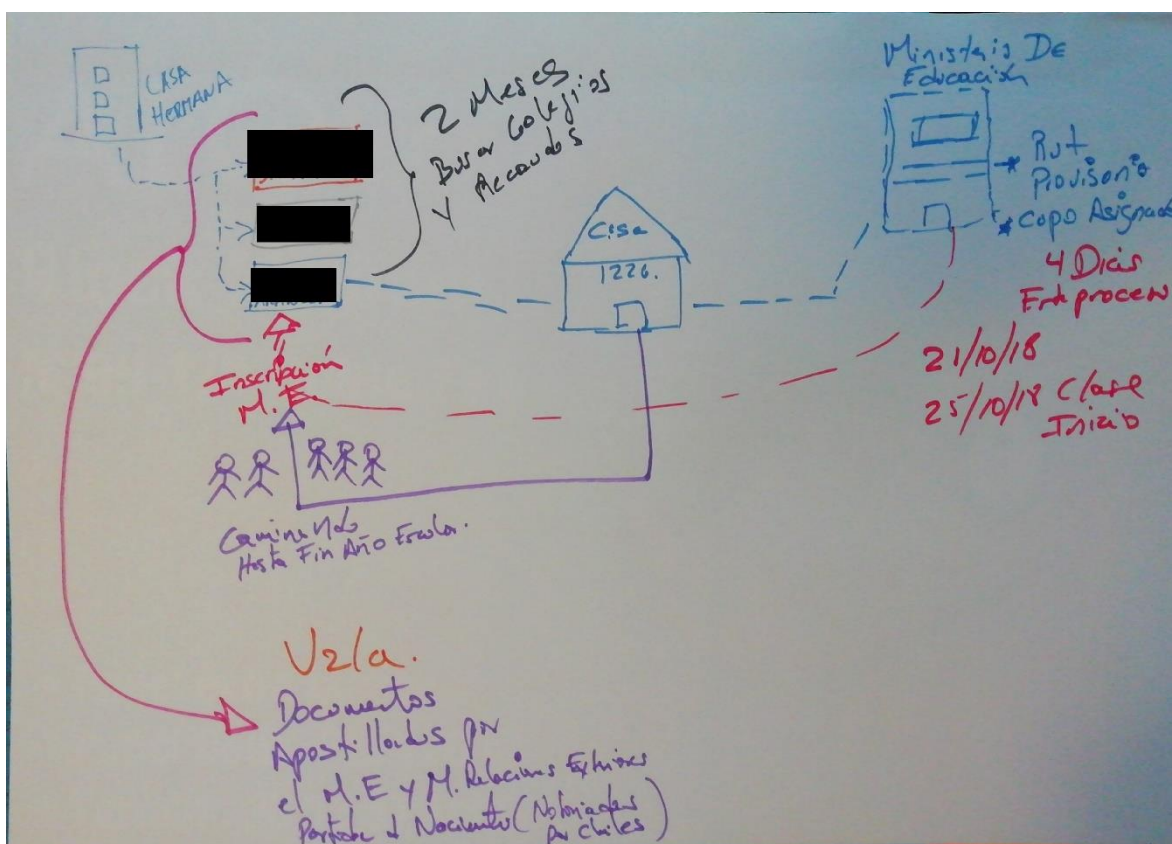 CASA
HERMANA
2 Meses
Buscar Colegios
y Recaudos
Ministerio De
Educación
* Rut
Provisorio
* Cupo Asignado
4 Dias
Este proceso
21/10/18
25/10/18 Clase
Inicio
Casa
1226.
Inscripción
M.E.
Caminando
Hasta Fin Año Escolar.
Vzla.
Documentos
Apostillados por
el M.E y M. Relaciones Exteriores
Partida d Nacimiento (Notoriadas
por Chiles)